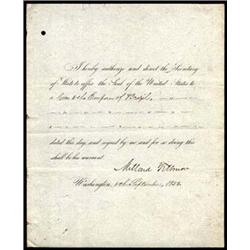 I hereby authorize and direct the Secretary
of State to affix the Seal of the United States to
of Brazil,
dated this day, and signed by me and for so doing this
shall be his warrant.
Millard Fillmore
Washington, September, 1852.